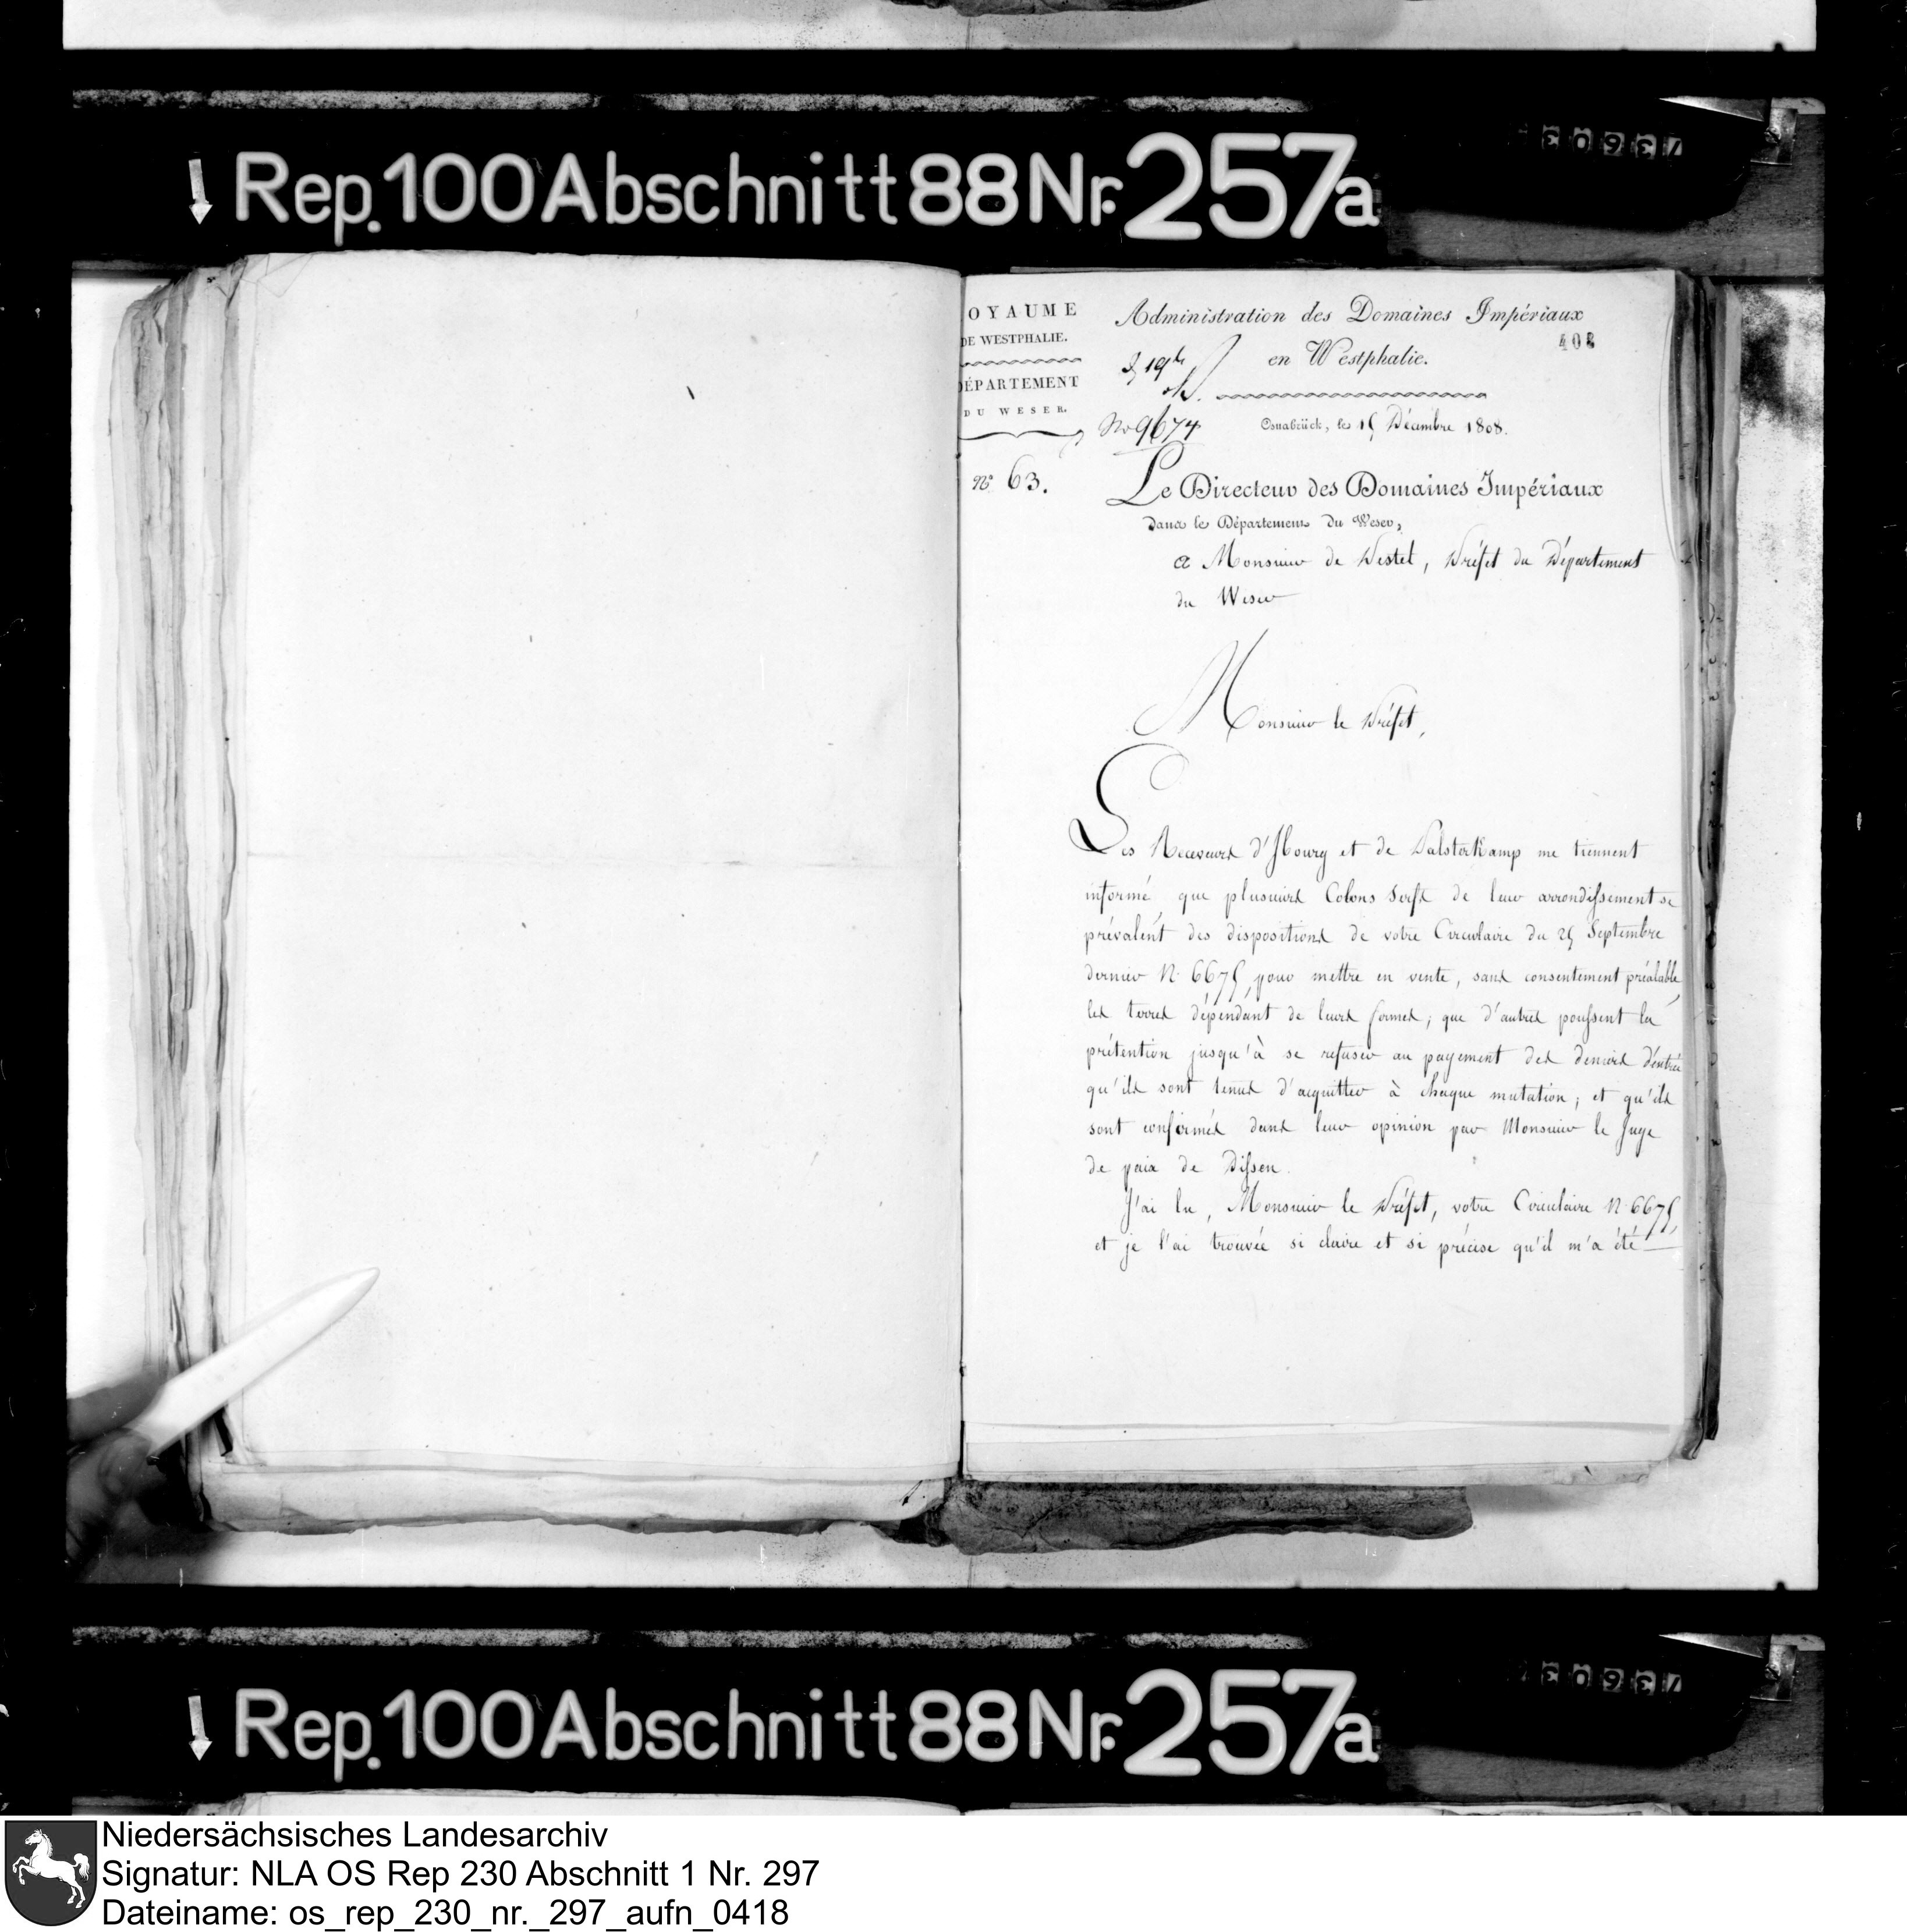 Rep. 100 Abschnitt 88 Nr. 257a
OYAUME
DE WESTPHALIE.
DÉPARTEMENT
DU WESER.
n° 63.
Administration des Domaines Impériaux
408
en Westphalie.
No 9674
Osnabrück, le 15 Décembre 1808.
Le Directeur des Domaines Impériaux
dans le Département du Weser,
a Monsieur de Pestel, Préfet du Département
du Weser
Monsieur le Préfet,
Les Receveurs d'Iburg et de Palsterkamp me tiennent
informé que plusieurs Colons Serfs de leur arrondissement se
prévalent des dispositions de votre Circulaire du 25 Septembre
dernier N. 6675, pour mettre en vente, sans consentement préalable,
les terres dépendant de leurs fermes; que d'autres poussent la
prétention jusqu'à se refuser au payement des deniers d'entrée
qu'ils sont tenus d'acquitter à chaque mutation; et qu'ils
sont confirmés dans leur opinion par Monsieur le Juge
de paix de Dissen.
J'ai lu, Monsieur le Préfet, votre Circulaire N. 6675,
et je l'ai trouvée si claire et si précise qu'il m'a été
Rep. 100 Abschnitt 88 Nr. 257a
Niedersächsisches Landesarchiv
Signatur: NLA OS Rep 230 Abschnitt 1 Nr. 297
Dateiname: os_rep_230_nr._297_aufn_0418